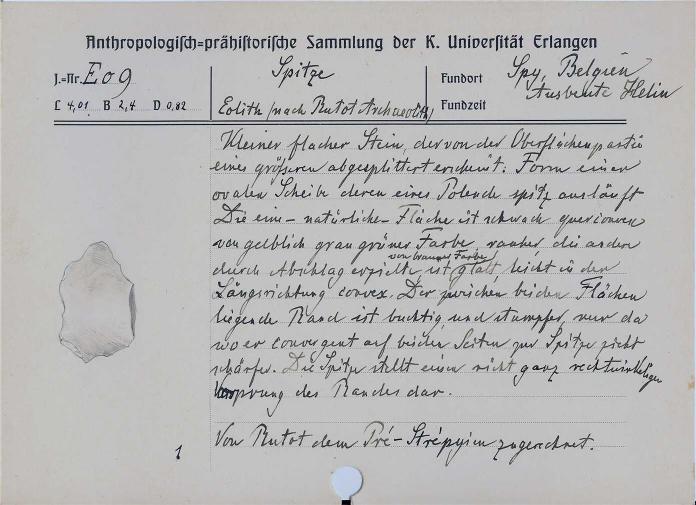 Anthropologisch=prähistorische Sammlung der K. Universität Erlangen
J.=Nr. E09
Spitze
Fundort Spy, Belgien
Ausbeute Helin
L 4,01 B 2,4 D 0,82
Eolith (nach Rutot Archaeolith)
Fundzeit
Kleiner flacher Stein, der von der Oberflächenpartie
eines größeren abgesplittert erscheint. Form einer
ovalen Scheibe deren eines Polende spitz ausläuft
Die eine – natürliche – Fläche ist schwach querconvex
von gelblich graugrüner Farbe, rauher, die andere
durch Abschlag erzielte ist von brauner Farbe glatt, leicht in der
Längsrichtung convex. Der zwischen beiden Flächen
liegende Rand ist buchtig und stumpfer, nur da
wo er convergent auf beiden Seiten zur Spitze zieht
schärfer. Die Spitze stellt einen nicht ganz rechtwinkeligen
Vorsprung des Randes dar.
Von Rutot dem Pré-Strépyien zugerechnet.
1